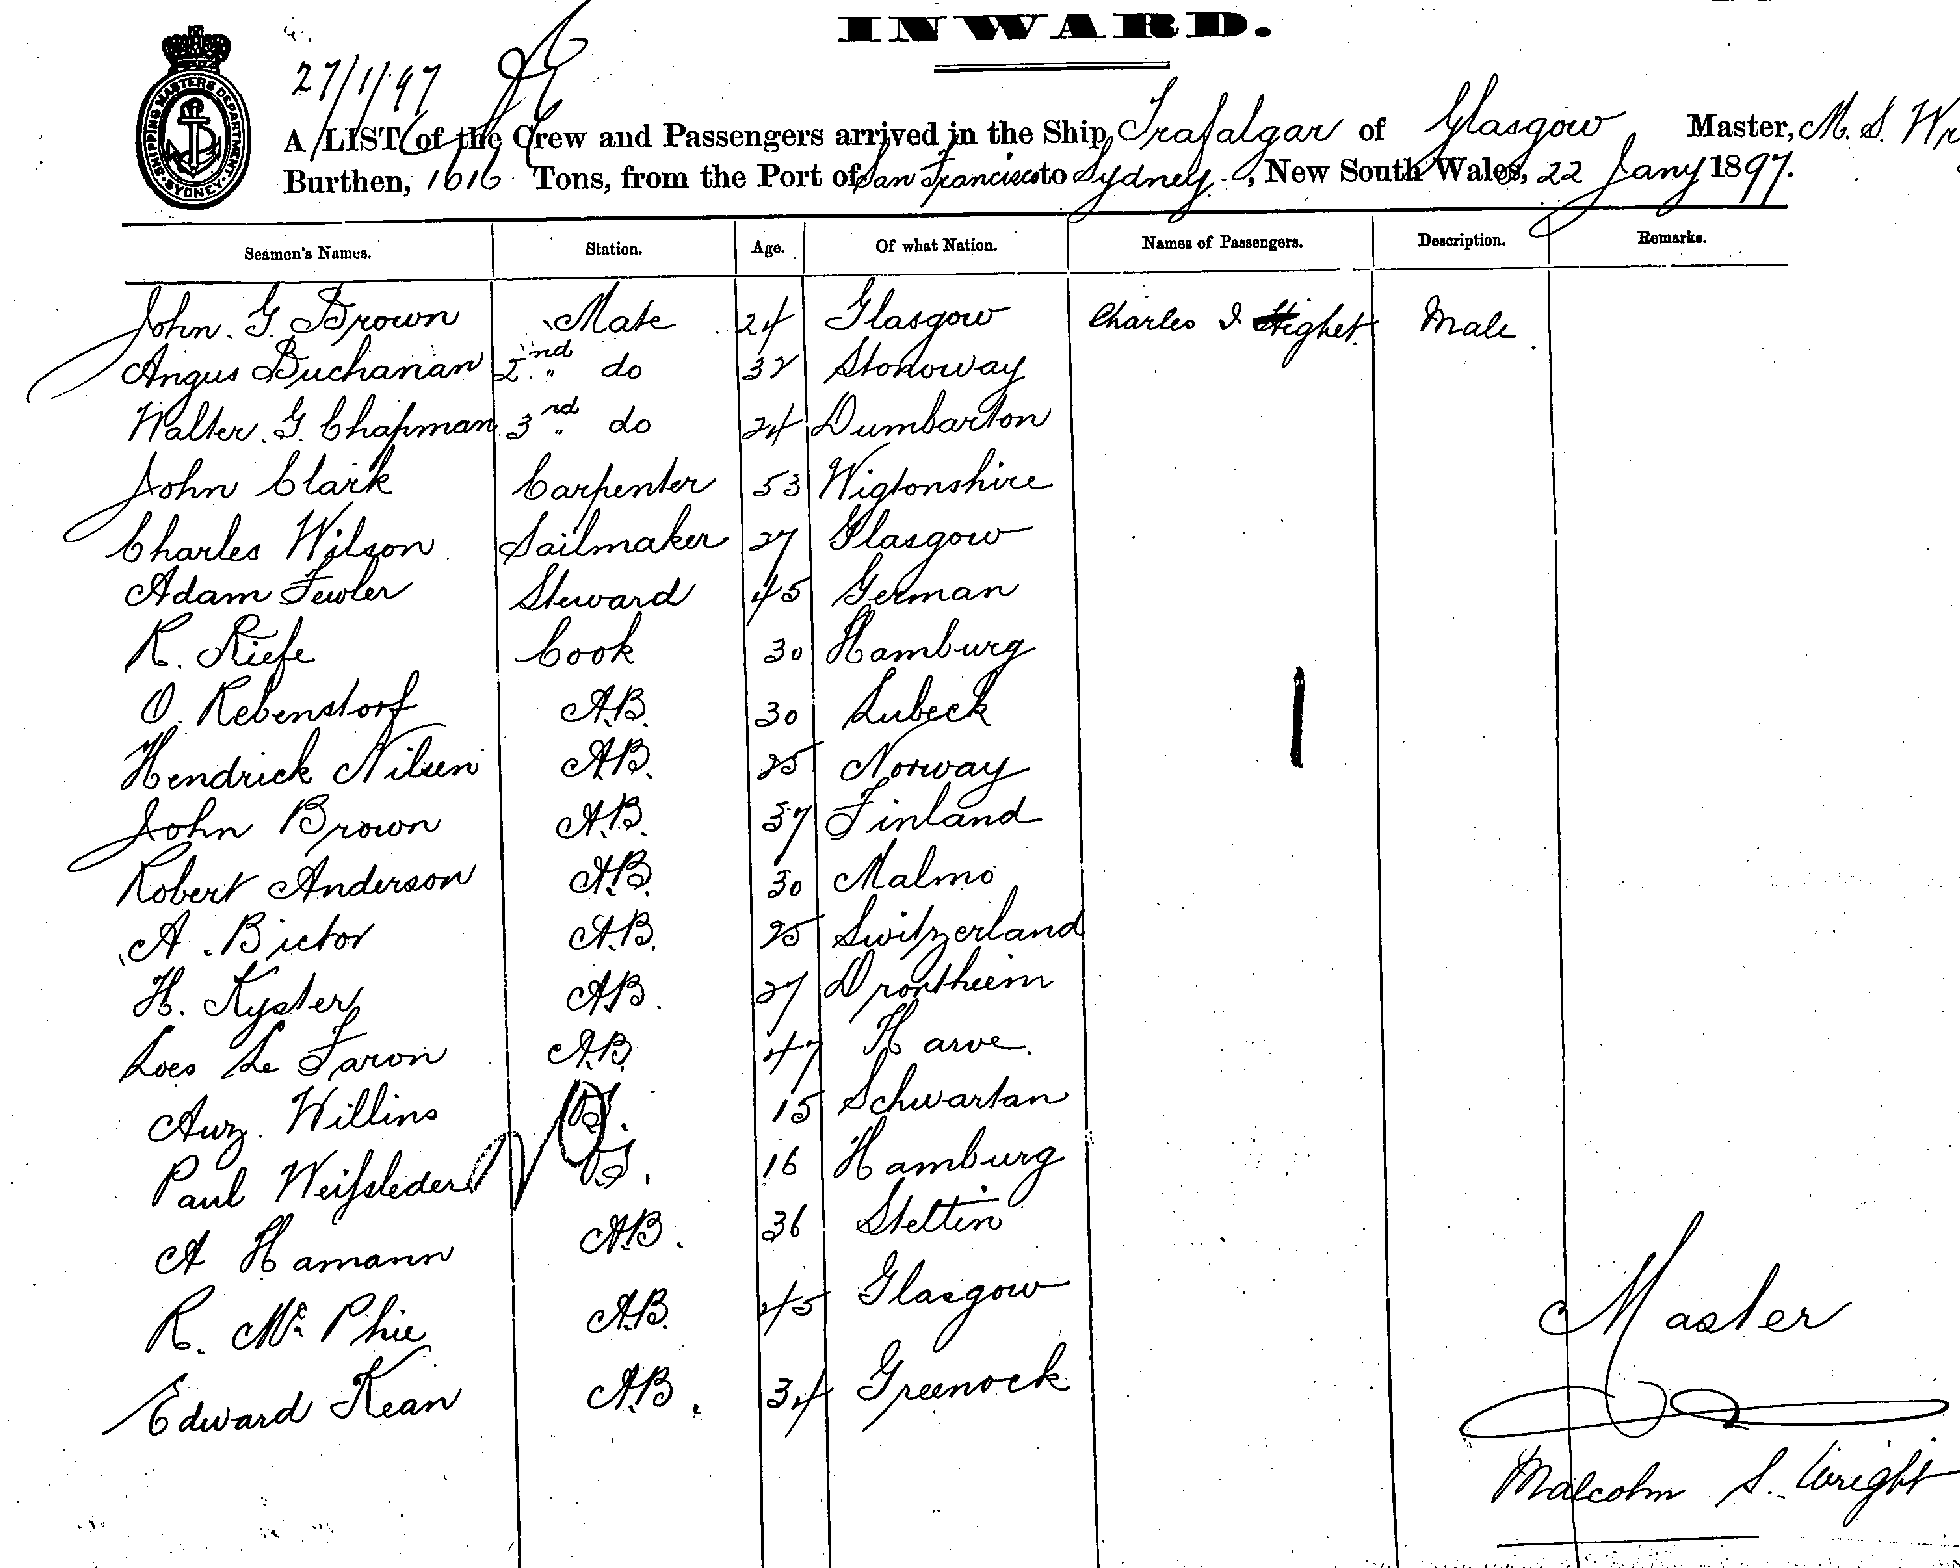 INWARD.
27/1/97
SHIPPING MASTERS DEPARTMENT SYDNEY
A LIST of the Crew and Passengers arrived in the Ship, Trafalgar of Glasgow Master, M. S. Wr
Burthen, 1616 Tons, from the Port of San Francisco to Sydney, New South Wales, 22 Jany 1897.
Seamen's Names. Station. Age. Of what Nation. Names of Passengers. Description. Remarks.
John. G. Brown Mate 24 Glasgow Charles I Highet. Male
Angus Buchanan 2nd do 32 Stonoway
Walter. G. Chapman 3rd do 24 Dumbarton
John Clark Carpenter 53 Wigtonshire
Charles Wilson Sailmaker 27 Glasgow
Adam Fewler Steward 45 German
R. Riefe Cook 30 Hamburg
O. Rebenstorf A.B. 30 Lubeck
Hendrick Nilsen A.B. 25 Norway
John Brown A.B. 37 Finland
Robert Anderson A.B. 30 Malmo
A. Bictor A.B. 25 Switzerland
H. Kyster A.B. 27 Drontheim
Loes Le Faron A.B. 47 Harve.
Aug. Willins 15 Schwartan
Paul Weifsleder 16 Hamburg
A Hamann A.B. 36 Stettin
R. Mc Phie A.B. 45 Glasgow
Edward Kean A.B. 34 Greenock
Master
Malcolm S. Wright